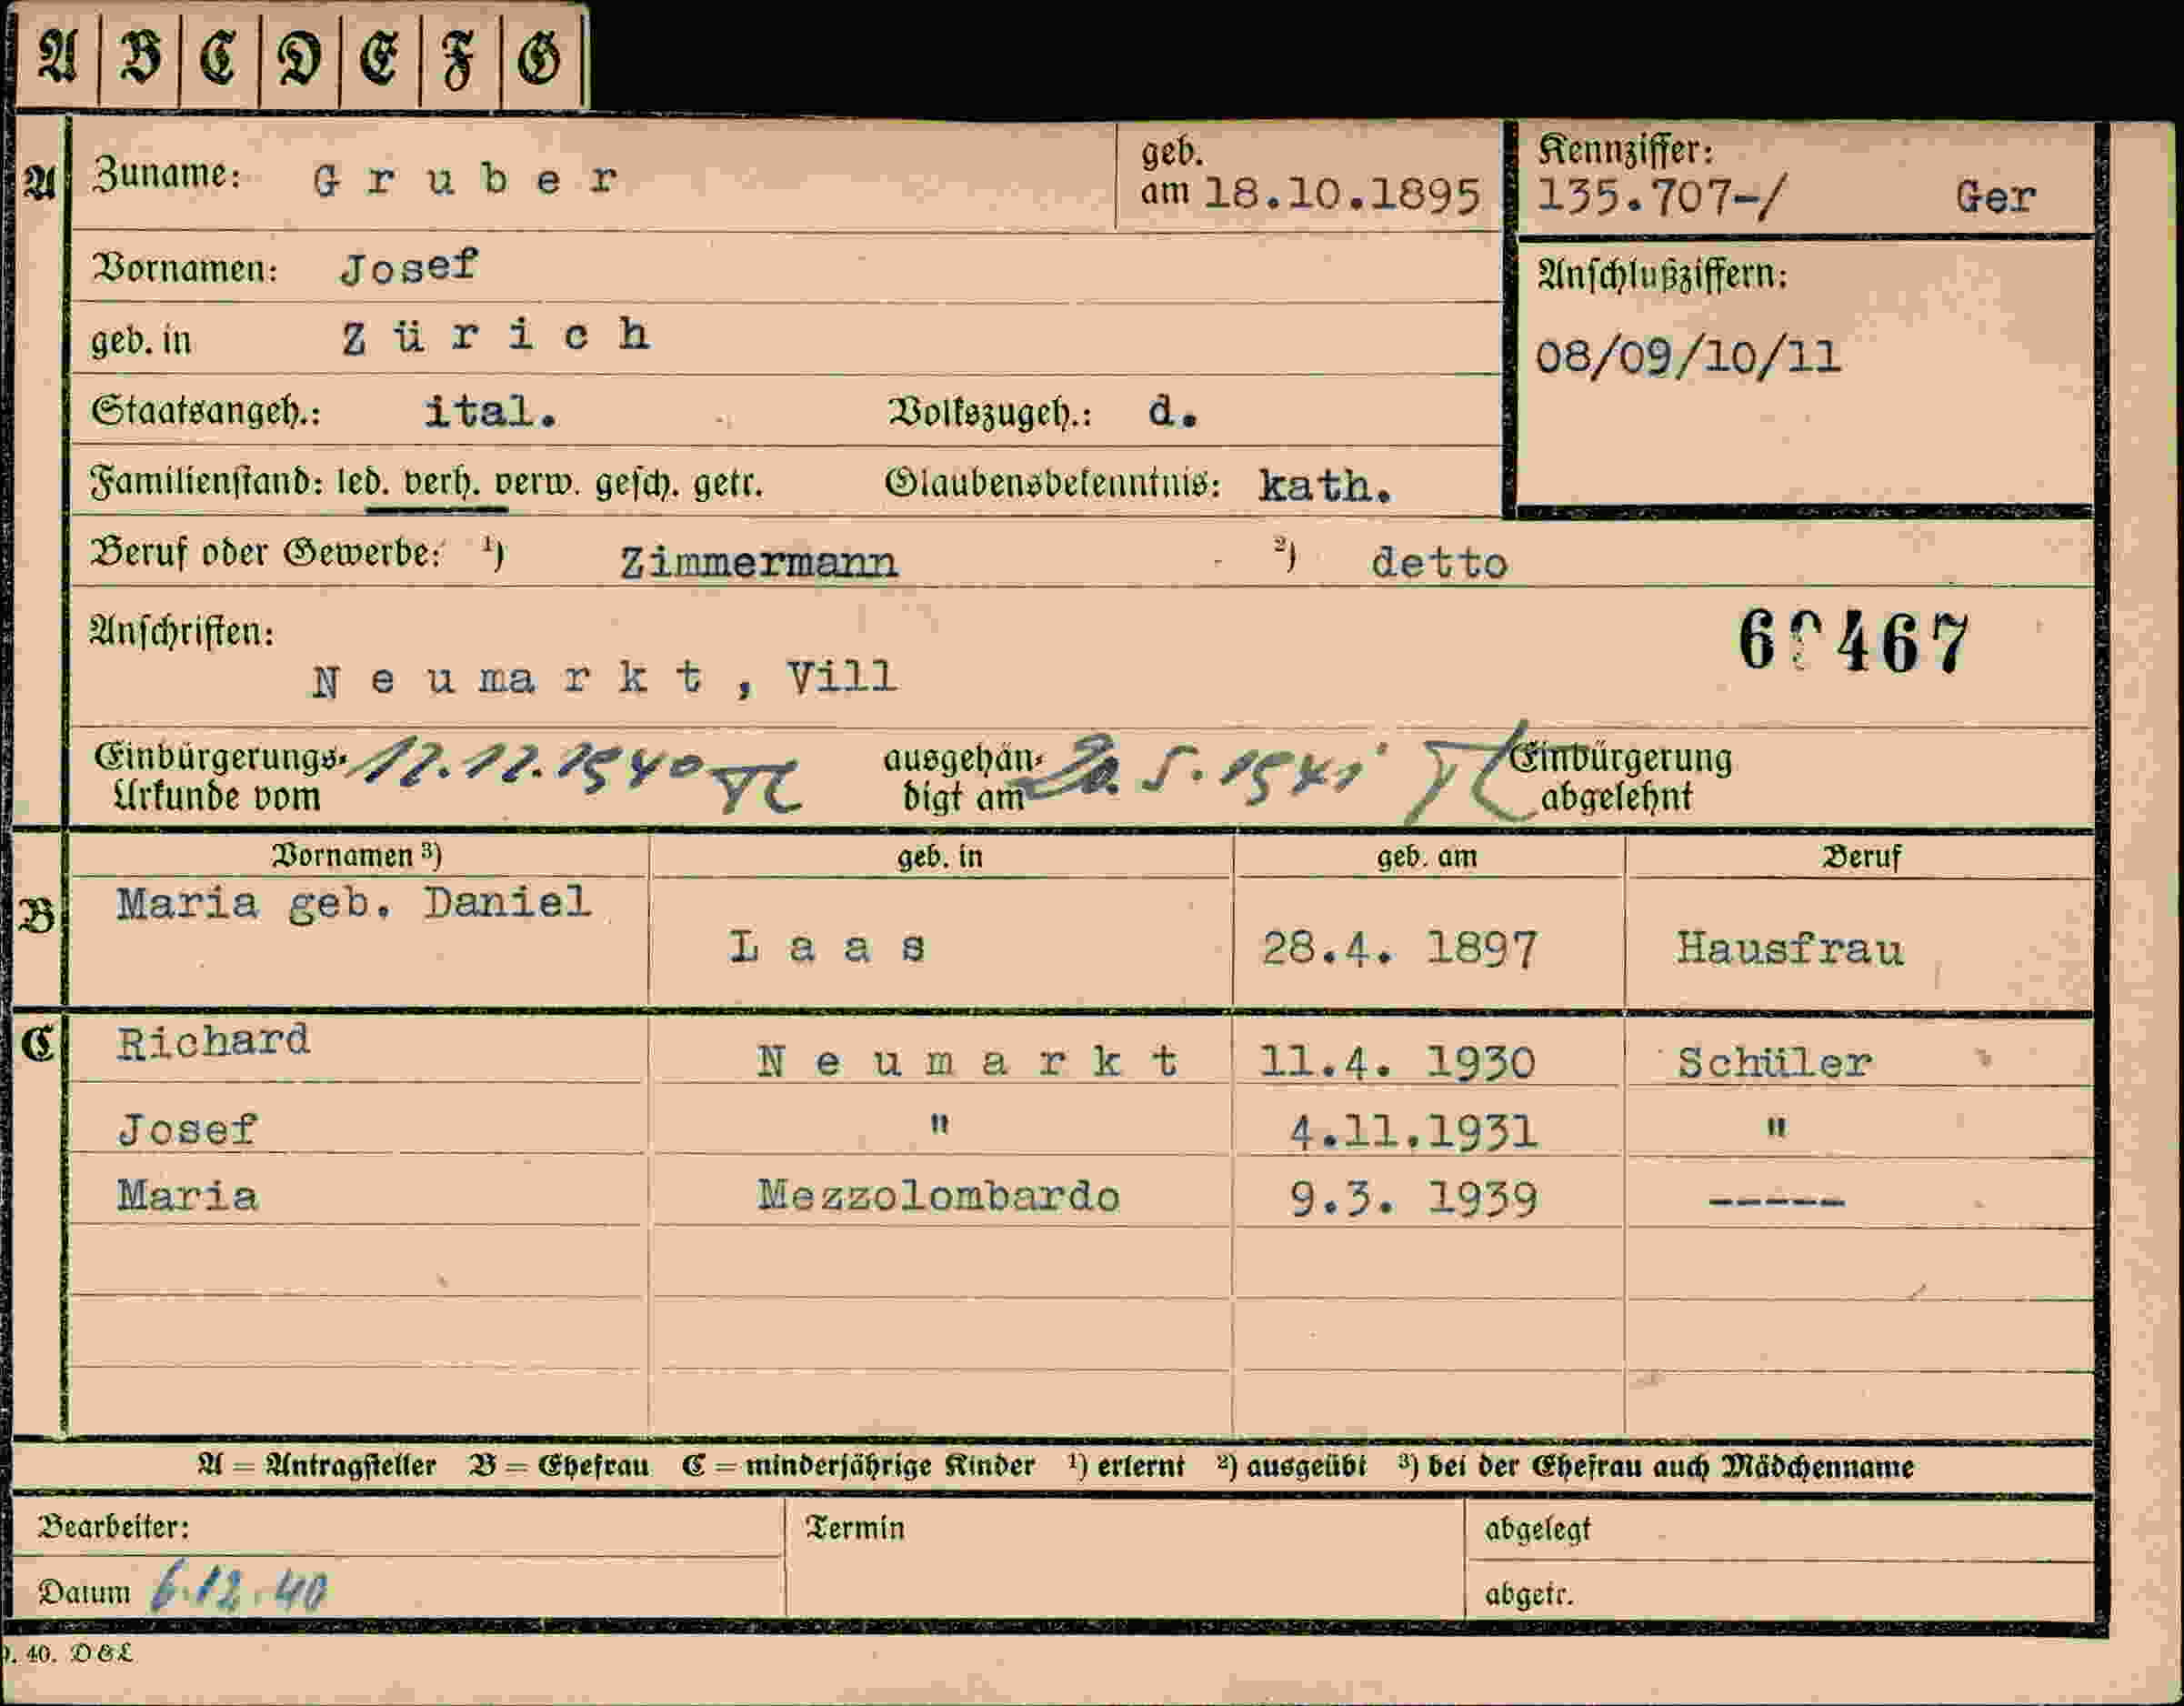 A B C D E F G
A Zuname: Gruber geb. am 18.10.1895 Kennziffer: 135.707-/ Ger
Vornamen: Josef
Anschlußziffern:
geb. in Zürich
08/09/10/11
Staatsangeh.: ital. Volkszugeh.: d.
Familienstand: led. verh. verw. gesch. getr. Glaubensbekenntnis: kath.
Beruf oder Gewerbe: 1) Zimmermann 2) detto
Anschriften:
Neumarkt, Vill
Einbürgerungs-Urkunde vom 12.12.1940 ausgehän-digt am 20.5.1941 Einbürgerung abgelehnt
Vornamen 3) geb. in geb. am Beruf
B Maria geb. Daniel
Laas 28.4. 1897 Hausfrau
C Richard Neumarkt 11.4. 1930 Schüler
Josef " 4.11.1931 "
Maria Mezzolombardo 9.3. 1939 -----
A = Antragsteller B = Ehefrau C = minderjährige Kinder 1) erlernt 2) ausgeübt 3) bei der Ehefrau auch Mädchenname
Bearbeiter: Termin abgelegt
Datum 6.12.40 abgetr.
40. D&L